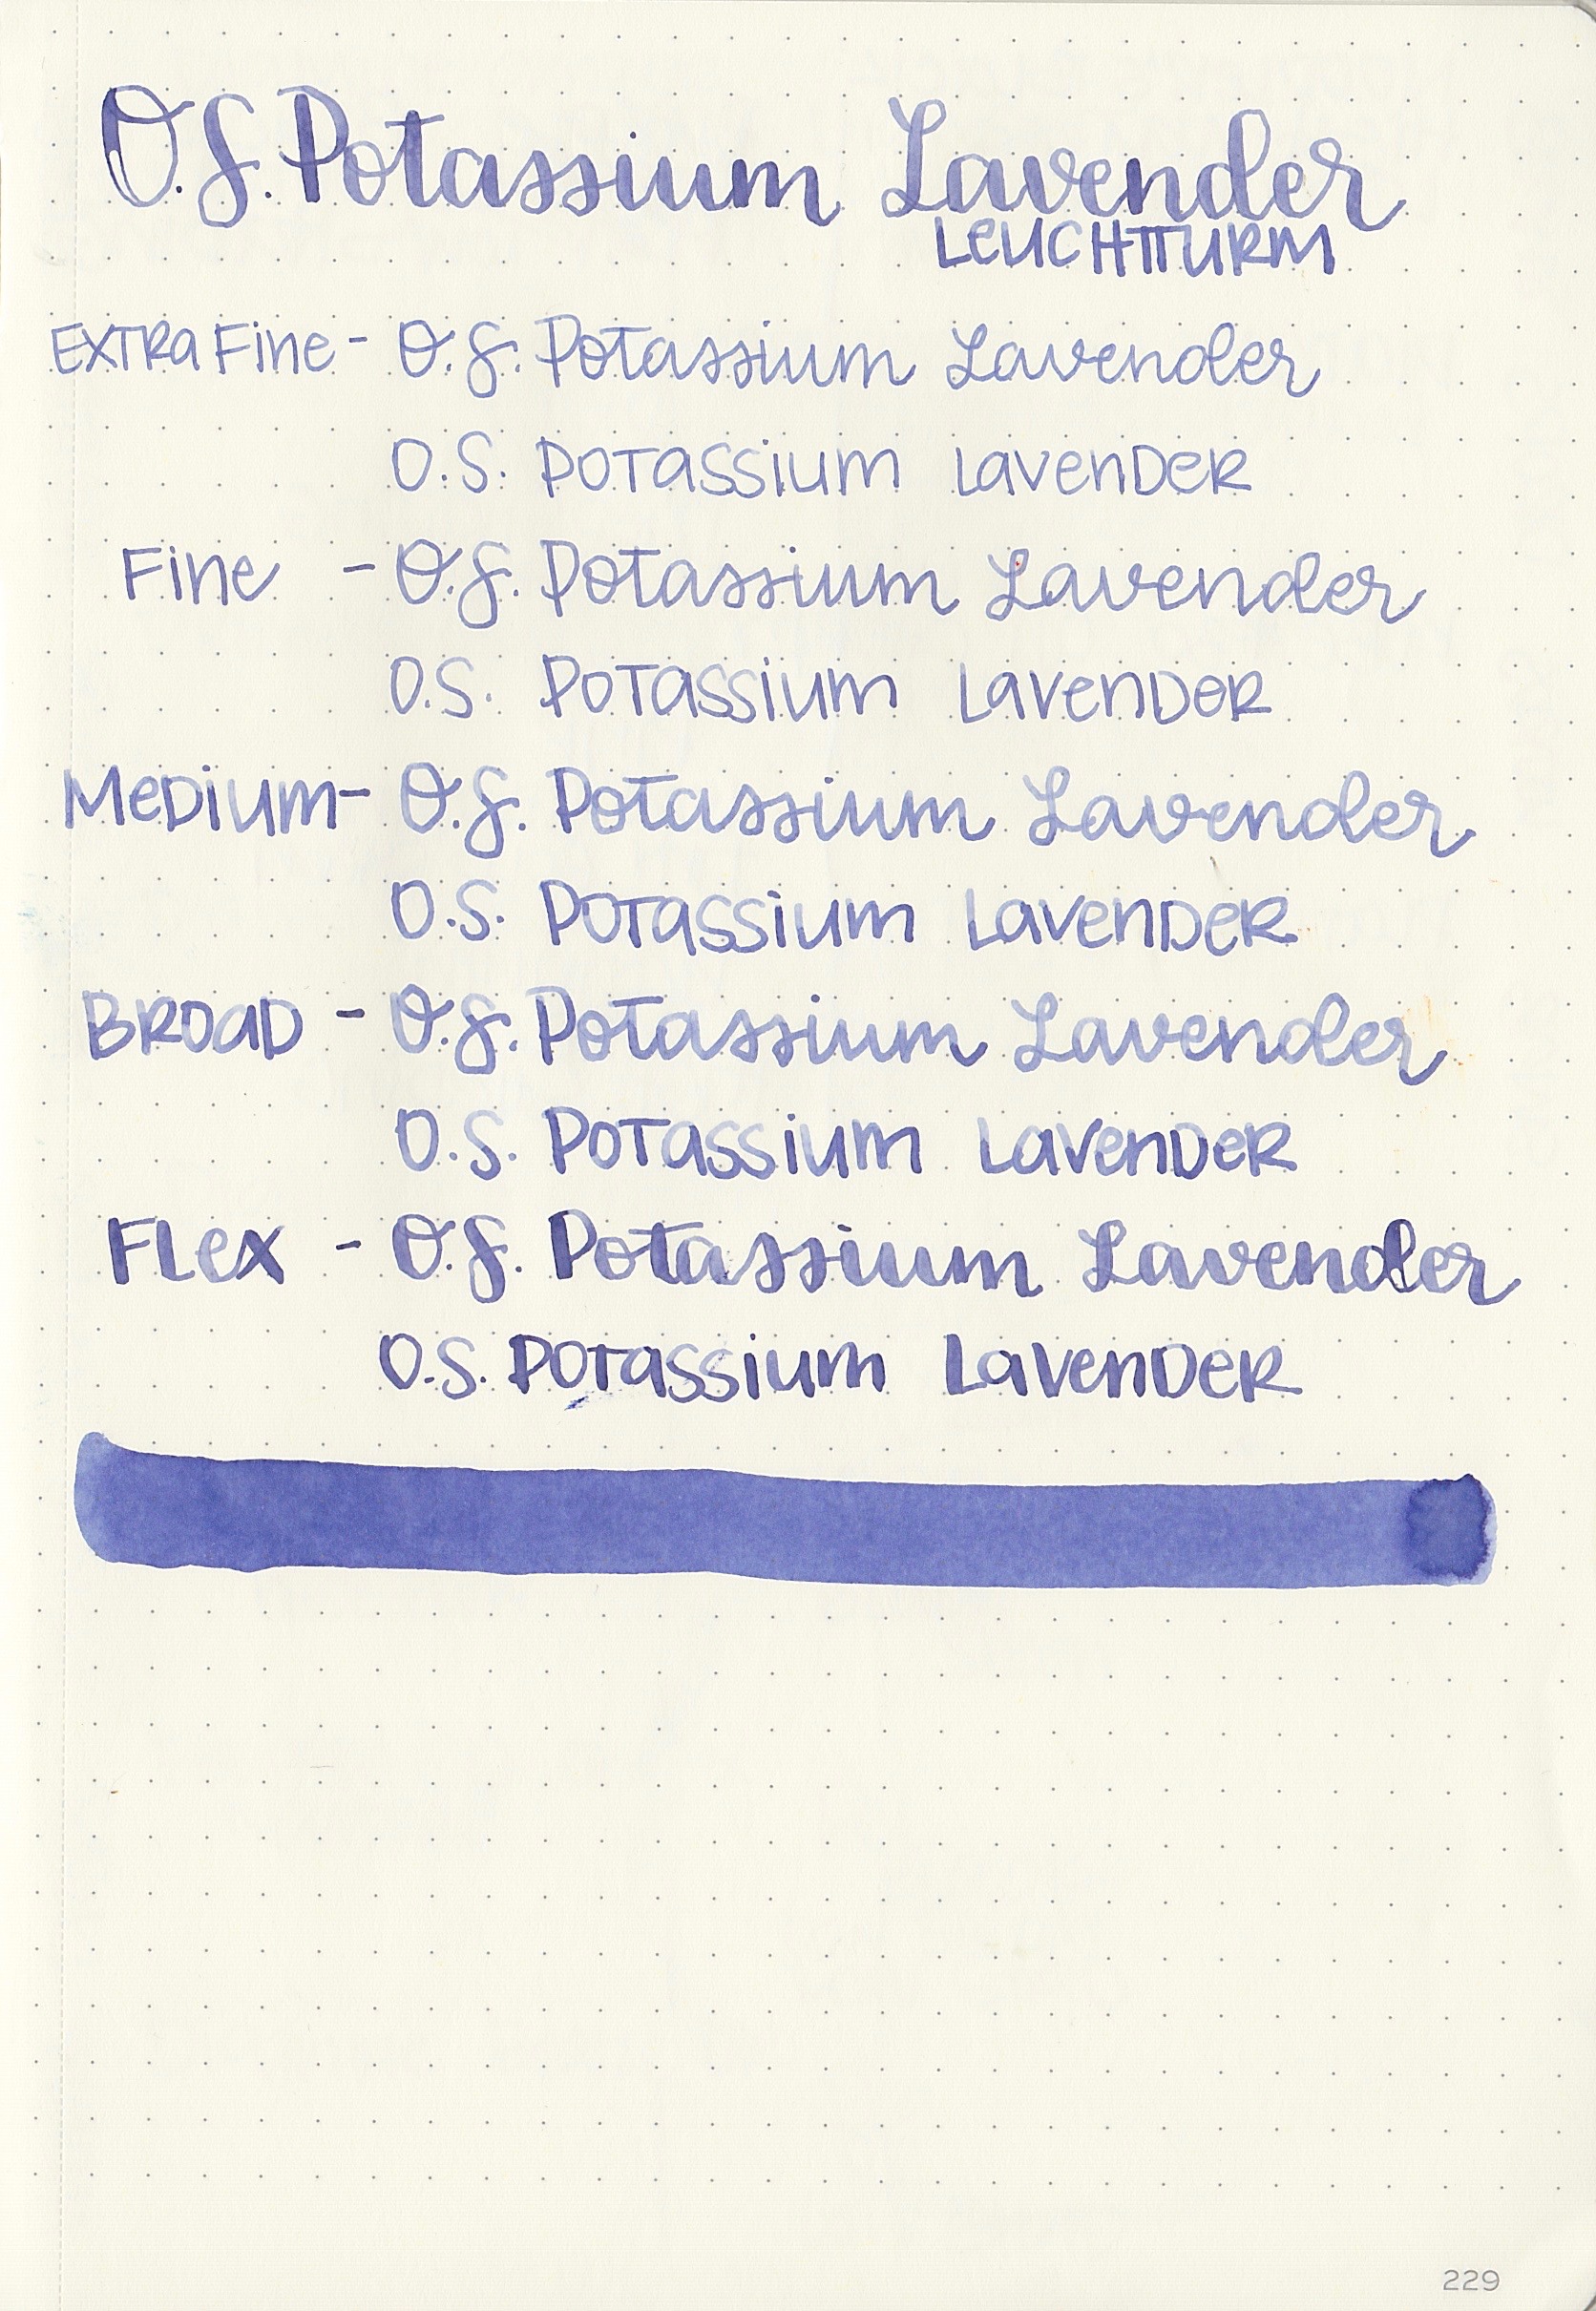 O.S. Potassium Lavender
LeUCHTTURM
EXTRa Fine - O.S. Potassium Lavender
O.S. POTaSSium LavenDeR
Fine - O.S. Potassium Lavender
O.S. POTaSSium LavenDeR
MeDium - O.S. Potassium Lavender
O.S. POTaSSium LavenDeR
BROaD - O.S. Potassium Lavender
O.S. POTaSSium LavenDeR
FLex - O.S. Potassium Lavender
O.S. POTaSSium LavenDeR
229